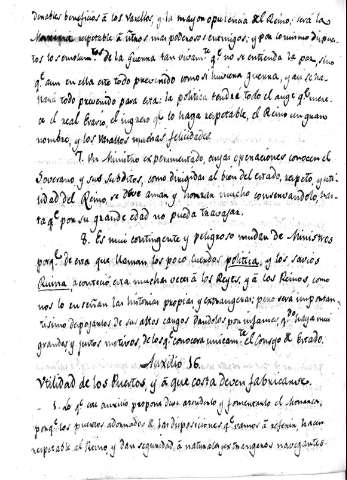 derables beneficios à los Vasallos, y la mayor opulencia del Reino; será la
Monarqª respetable à otros mas poderosos enemigos; y por lo mismo dispue-
tos los omolumtos de la Guerra tan vivamte qe no se entienda la paz, sino
qe aun en ella este todo prevenido como si huviera guerra, y asi se ha-
llará todo prevenido para esta: la politica tendrá todo el auge qe mere-
ce el real Erario, el ingreso qe lo haga respetable, el Reino un gran
nombre, y los Vasallos muchas felicidades.
7. Un Ministro experimentado, cuyas operaciones conocen el
Soverano y sus subditos, como dirigidas al bien del estado, respeto y uti-
lidad del Reino, se deve aman y honrran mucho conservandolo, has-
ta qe por su grande edad no pueda travajar.
8. Es mui contingente y peligroso mudar de Ministros
porqe de esta que llaman los poco cuerdos politica, y los savios
Ruina, acontecio esta muchas veces à los Reyes, y à los Reinos, como
nos lo enseñan las historias propias y extrangeras; pero será importan-
tisimo depojarlos de sus altos cargos dandolos por infames, qdo haya mui
grandes y justos motivos, de los qe conocerá unicamte el Consejo de Estado.
Auxilio 16.
Utilidad de los Puertos y à que costa deven fabricarse.
1. Lo qe este auxilio propone deve atenderlo y fomentarlo el Monarca,
porqe los puertos adornados de las disposiciones qe vamos à referir, hacen
respetable al Reino y dan seguridad, à naturales y extrangeros navegantes.